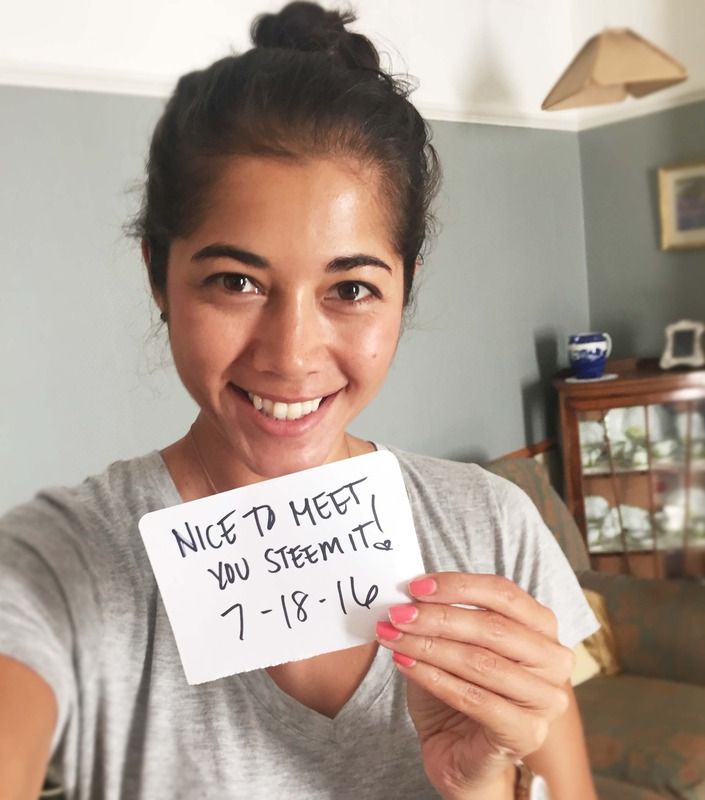 NICE TO MEET
YOU STEEMIT!
7-18-16